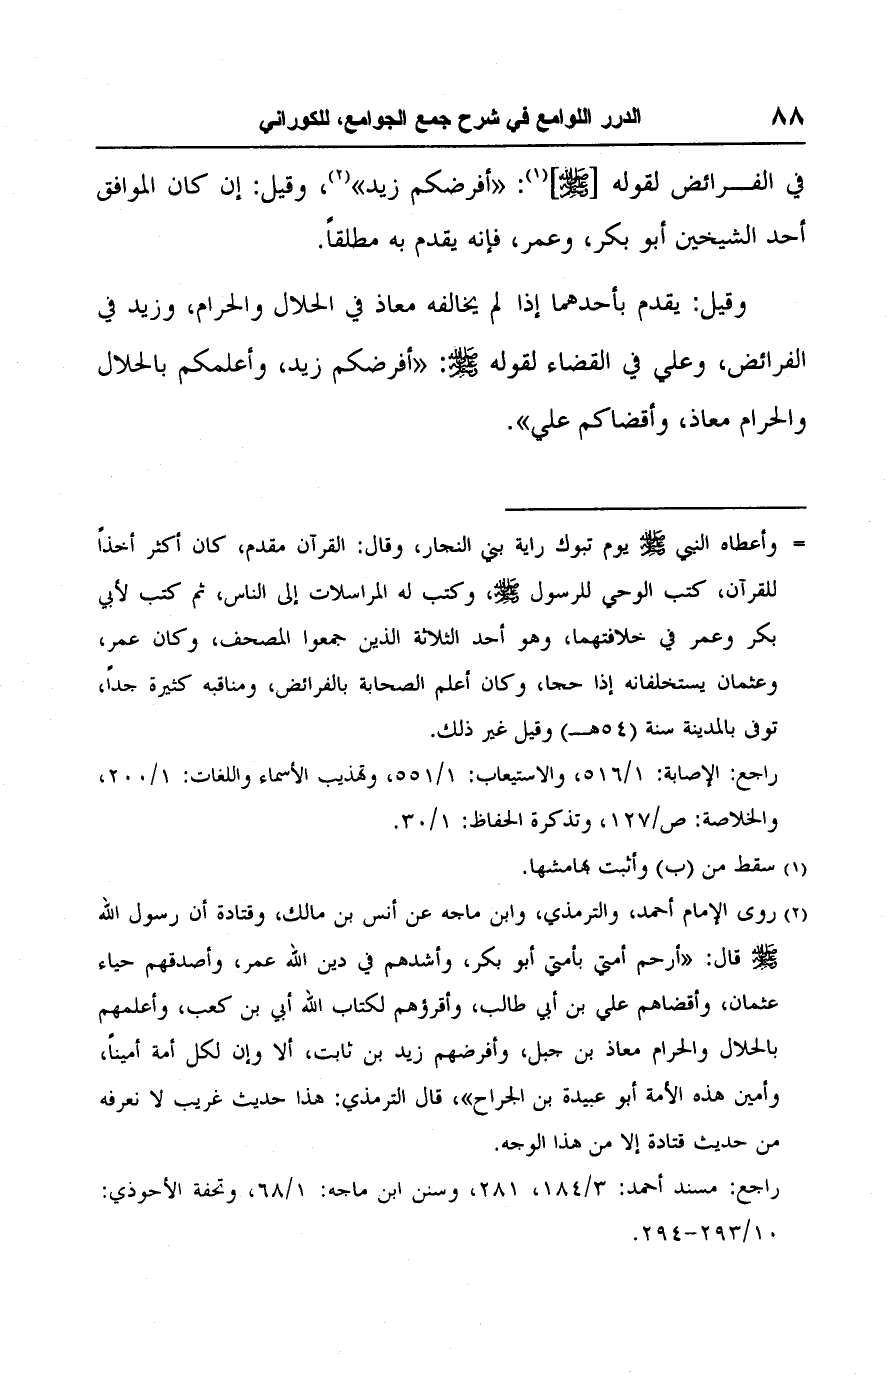 ٨٨ الدرر اللوامع في شرح جمع الجوامع، للكوراني
في الفـــرائض لقوله [ﷺ](١): «أفرضكم زيد»(٢)، وقيل: إن كان الموافق
أحد الشيخين أبو بكر، وعمر، فإنه يقدم به مطلقاً.
وقيل: يقدم بأحدهما إذا لم يخالفه معاذ في الحلال والحرام، وزيد في
الفرائض، وعلي في القضاء لقوله ﷺ: «أفرضكم زيد، وأعلمكم بالحلال
والحرام معاذ، وأقضاكم علي».
= وأعطاه النبي ﷺ يوم تبوك راية بني النجار، وقال: القرآن مقدم، كان أكثر أخذاً
للقرآن، كتب الوحي للرسول ﷺ، وكتب له المراسلات إلى الناس، ثم كتب لأبي
بكر وعمر في خلافتهما، وهو أحد الثلاثة الذين جمعوا المصحف، وكان عمر،
وعثمان يستخلفانه إذا حجا، وكان أعلم الصحابة بالفرائض، ومناقبه كثيرة جداً،
توفى بالمدينة سنة (٥٤هــ) وقيل غير ذلك.
راجع: الإصابة: ٥١٦/١، والاستيعاب: ٥٥١/١، وتهذيب الأسماء واللغات: ٢٠٠/١،
والخلاصة: ص/١٢٧، وتذكرة الحفاظ: ٣٠/١.
(١) سقط من (ب) وأثبت بهامشها.
(٢) روى الإمام أحمد، والترمذي، وابن ماجه عن أنس بن مالك، وقتادة أن رسول الله
ﷺ قال: «أرحم أمتي بأمتي أبو بكر، وأشدهم في دين الله عمر، وأصدقهم حياء
عثمان، وأقضاهم علي بن أبي طالب، وأقرؤهم لكتاب الله أبي بن كعب، وأعلمهم
بالحلال والحرام معاذ بن جبل، وأفرضهم زيد بن ثابت، ألا وإن لكل أمة أميناً،
وأمين هذه الأمة أبو عبيدة بن الجراح»، قال الترمذي: هذا حديث غريب لا نعرفه
من حديث قتادة إلا من هذا الوجه.
راجع: مسند أحمد: ١٨٤/٣، ٢٨١، وسنن ابن ماجه: ٦٨/١، وتحفة الأحوذي:
٢٩٣/١٠-٢٩٤.